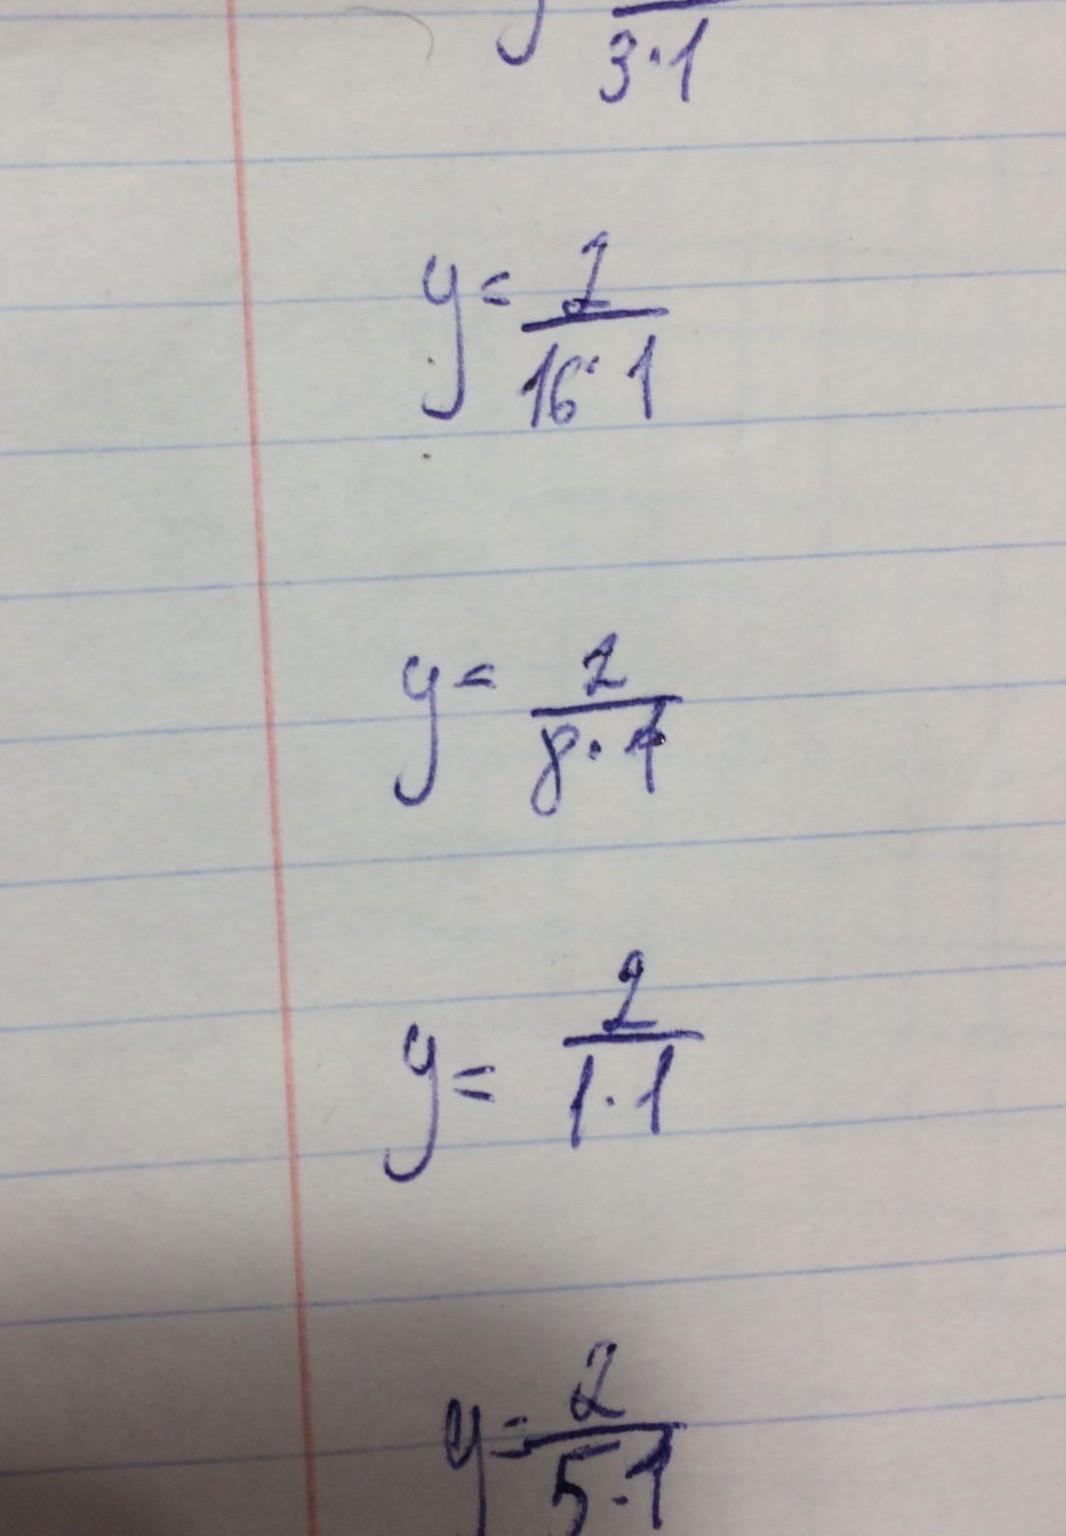 y= —
3·1
y= 2/(16·1)
y= 2/(8·1)
y= 2/(1·1)
y= 2/(5·1)